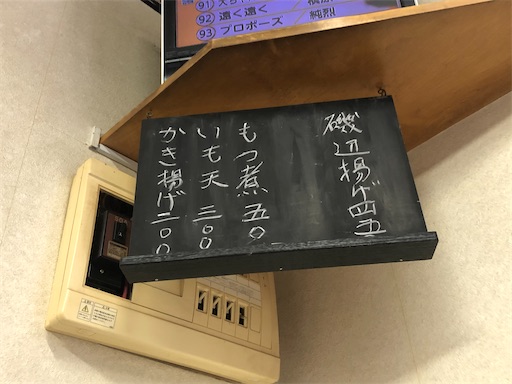 92 遠く遠く
93 プロポーズ / 純烈
磯辺揚げ四五
もつ煮五〇
いも天 三〇〇
かき揚げ二〇〇